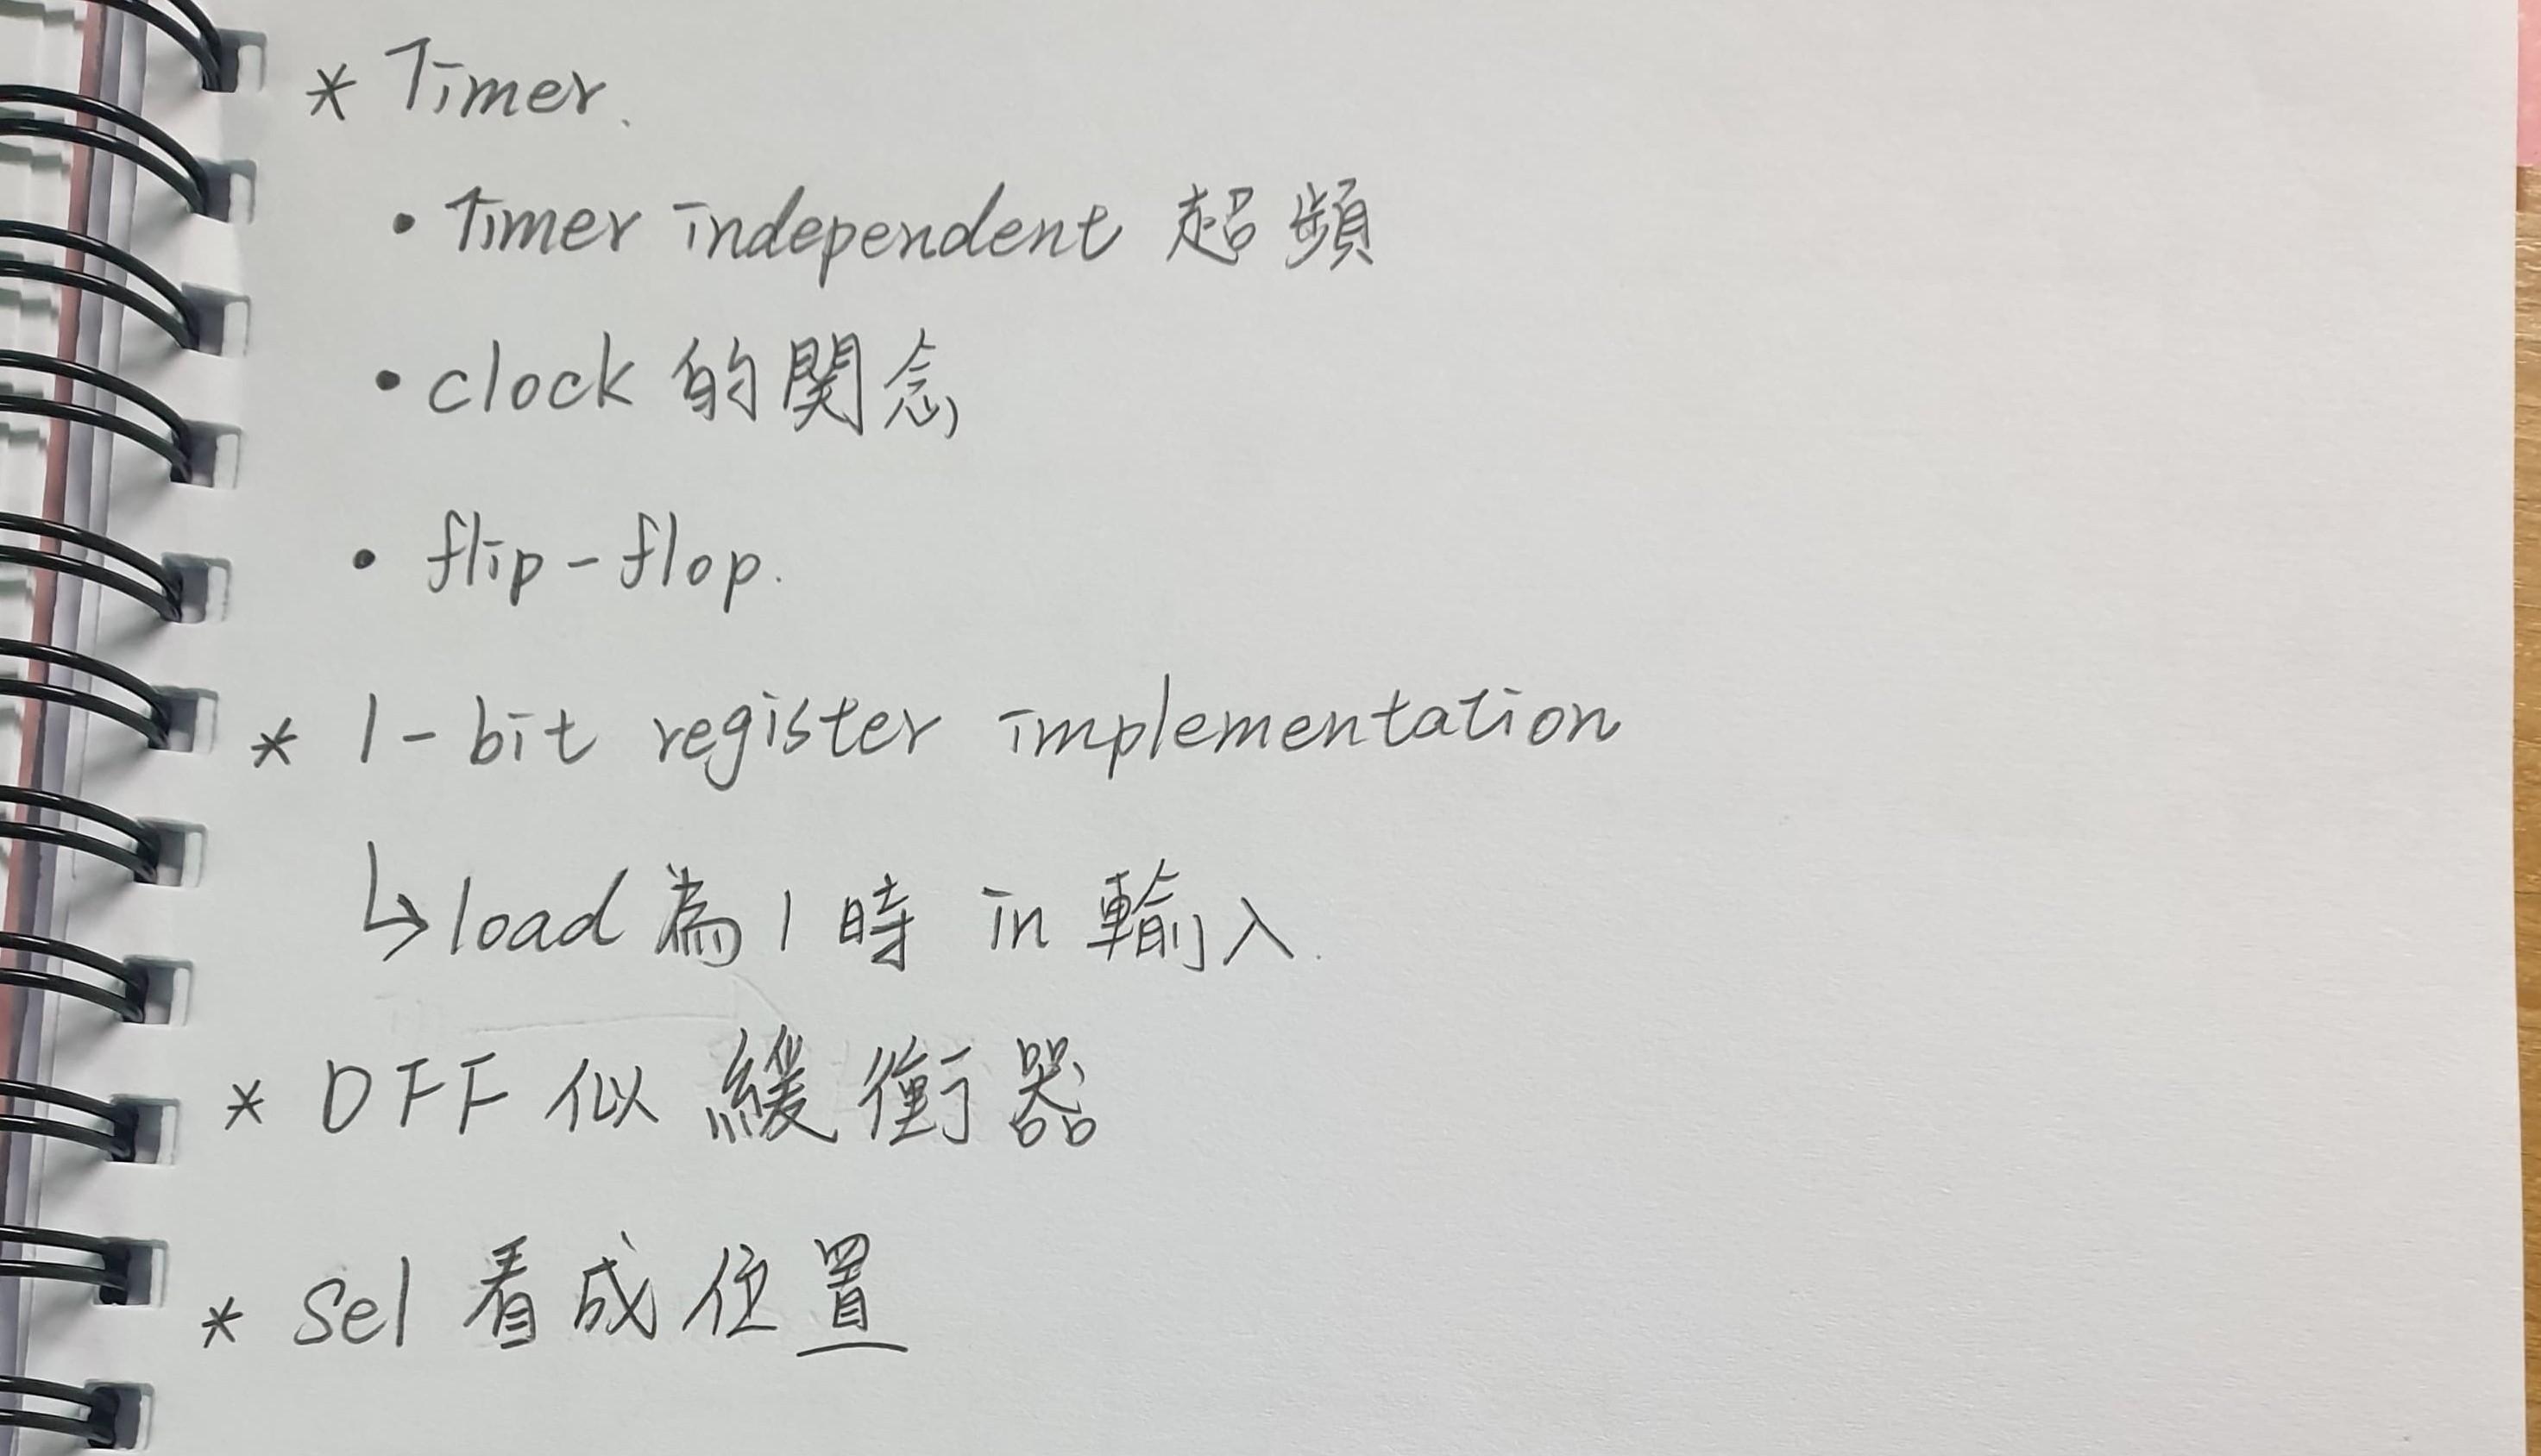 * Timer.
• Timer independent 超頻
• clock 的関念
• flip-flop.
* 1-bit register implementation
↳ load 為 1 時 in 輸入.
* DFF 似 緩衝器
* Sel 看成位置